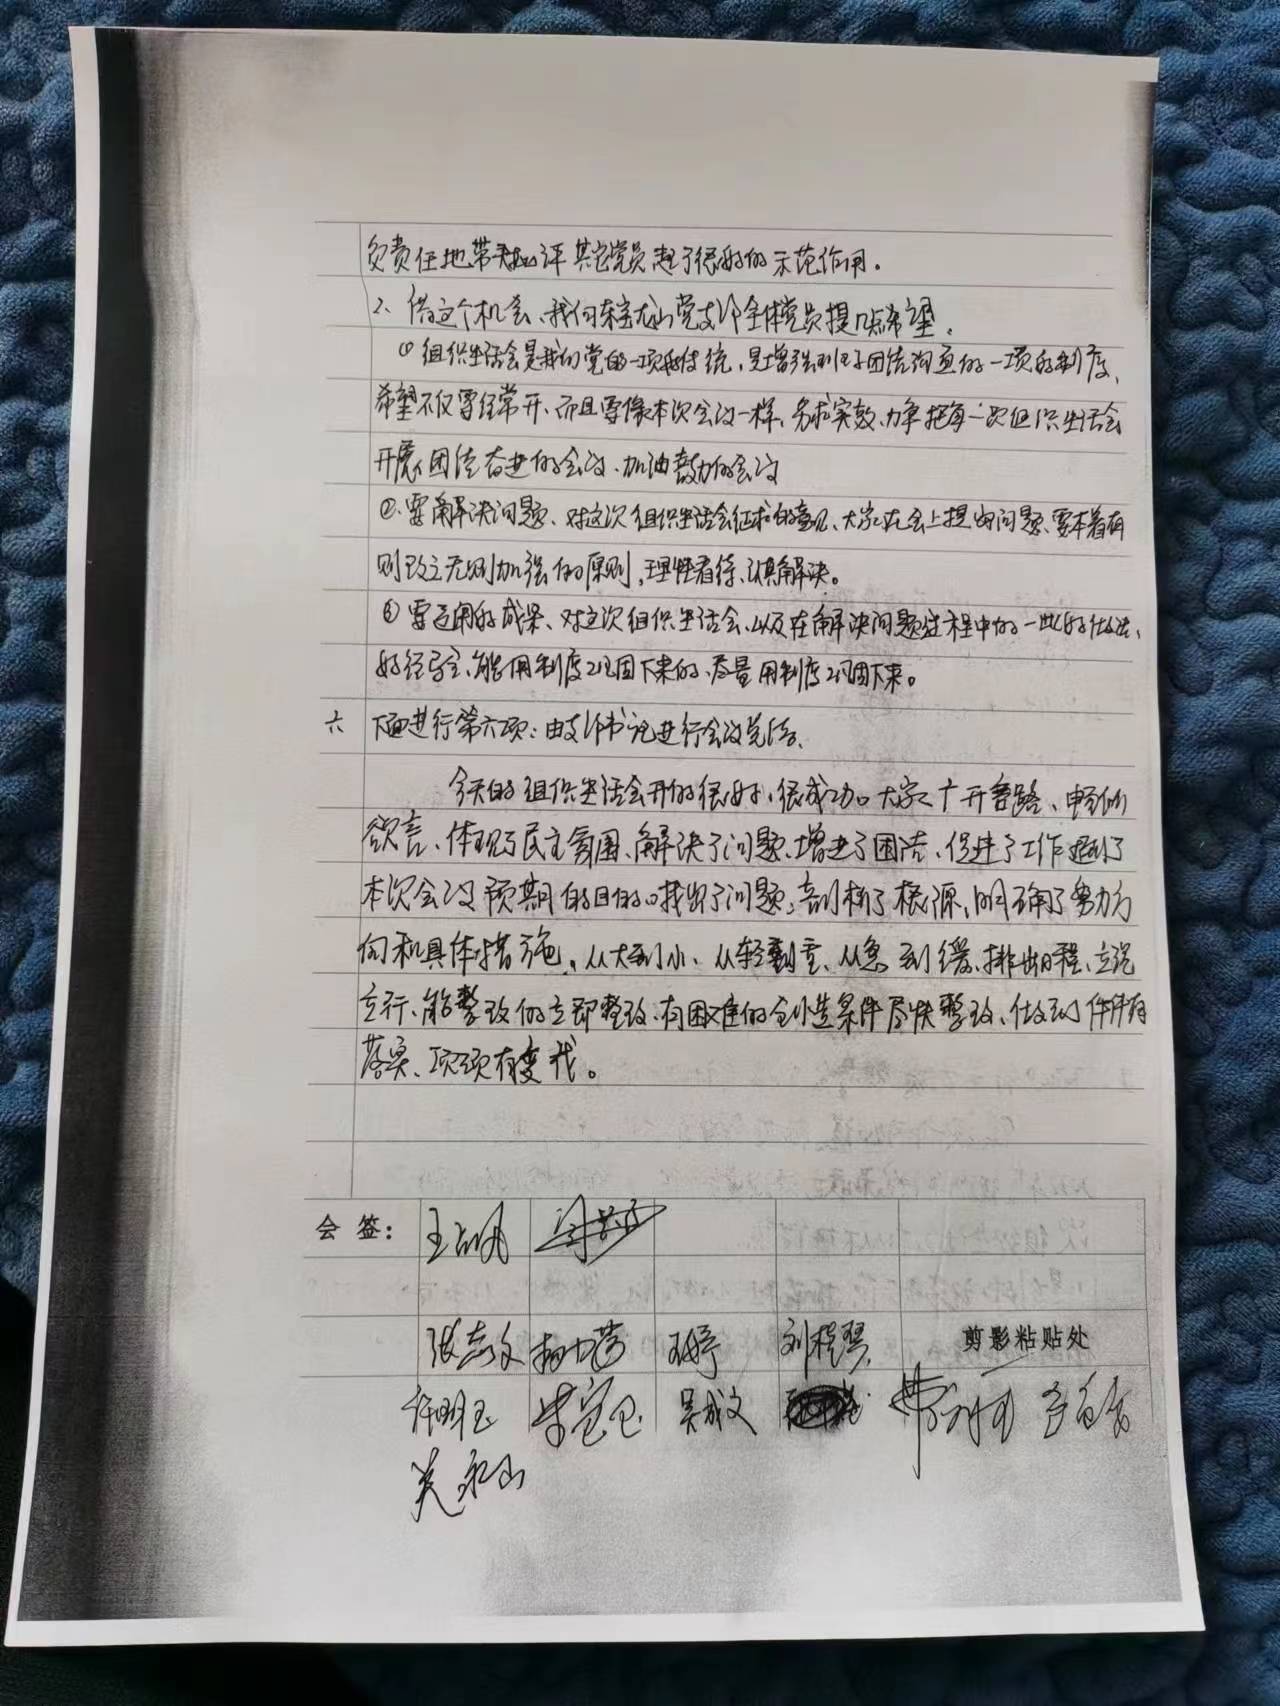 负责任地带头批评其它党员起了很好的示范作用。
2、借这个机会、我们东宝龙山党支部全体党员提几点希望。
① 组织生活会是我们党的一项好传统,是增强班子团结沟通的一项好制度,
希望不仅要经常开、而且要像本次会议一样、务求实效、力争把每一次组织生活会
开成团结奋进的会议、加油鼓劲的会议
②、要解决问题、对这次组织生活会征求的意见、大家在会上提出的问题、要本着有
则改之无则加强的原则,理性看待、认真解决。
③ 要运用好成果、对这次组织生活会、以及在解决问题过程中的一些好做法、
好经验、能用制度巩固下来的、尽量用制度巩固下来。
六 下面进行第六项:由支部书记进行会议总结、
今天的组织生活会开的很好、很成功。大家广开言路、畅所
欲言、体现了民主氛围、解决了问题、增进了团结、促进了工作达到了
本次会议预期的目的。找出了问题,剖析了根源,明确了努力方
向和具体措施。从大到小、从轻到重、从急到缓、排出日程、立说
立行、能整改的立即整改、有困难的创造条件尽快整改、做到件件有
落实、项项有变化。
会 签:
张志文 刘程琴
剪影粘贴处
许明玉 李宝卫 吴成文
吴永山